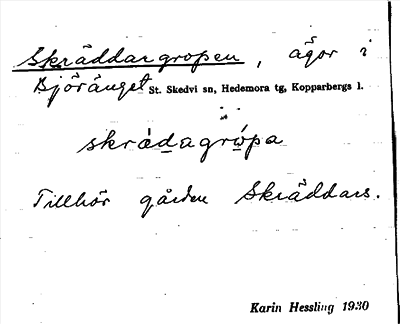 Skräddargropen, ägor i
Björänget St. Skedvi sn, Hedemora tg, Kopparbergs l.
skrädagrópa
Tillhör gården Skräddars.
Karin Hessling 1930